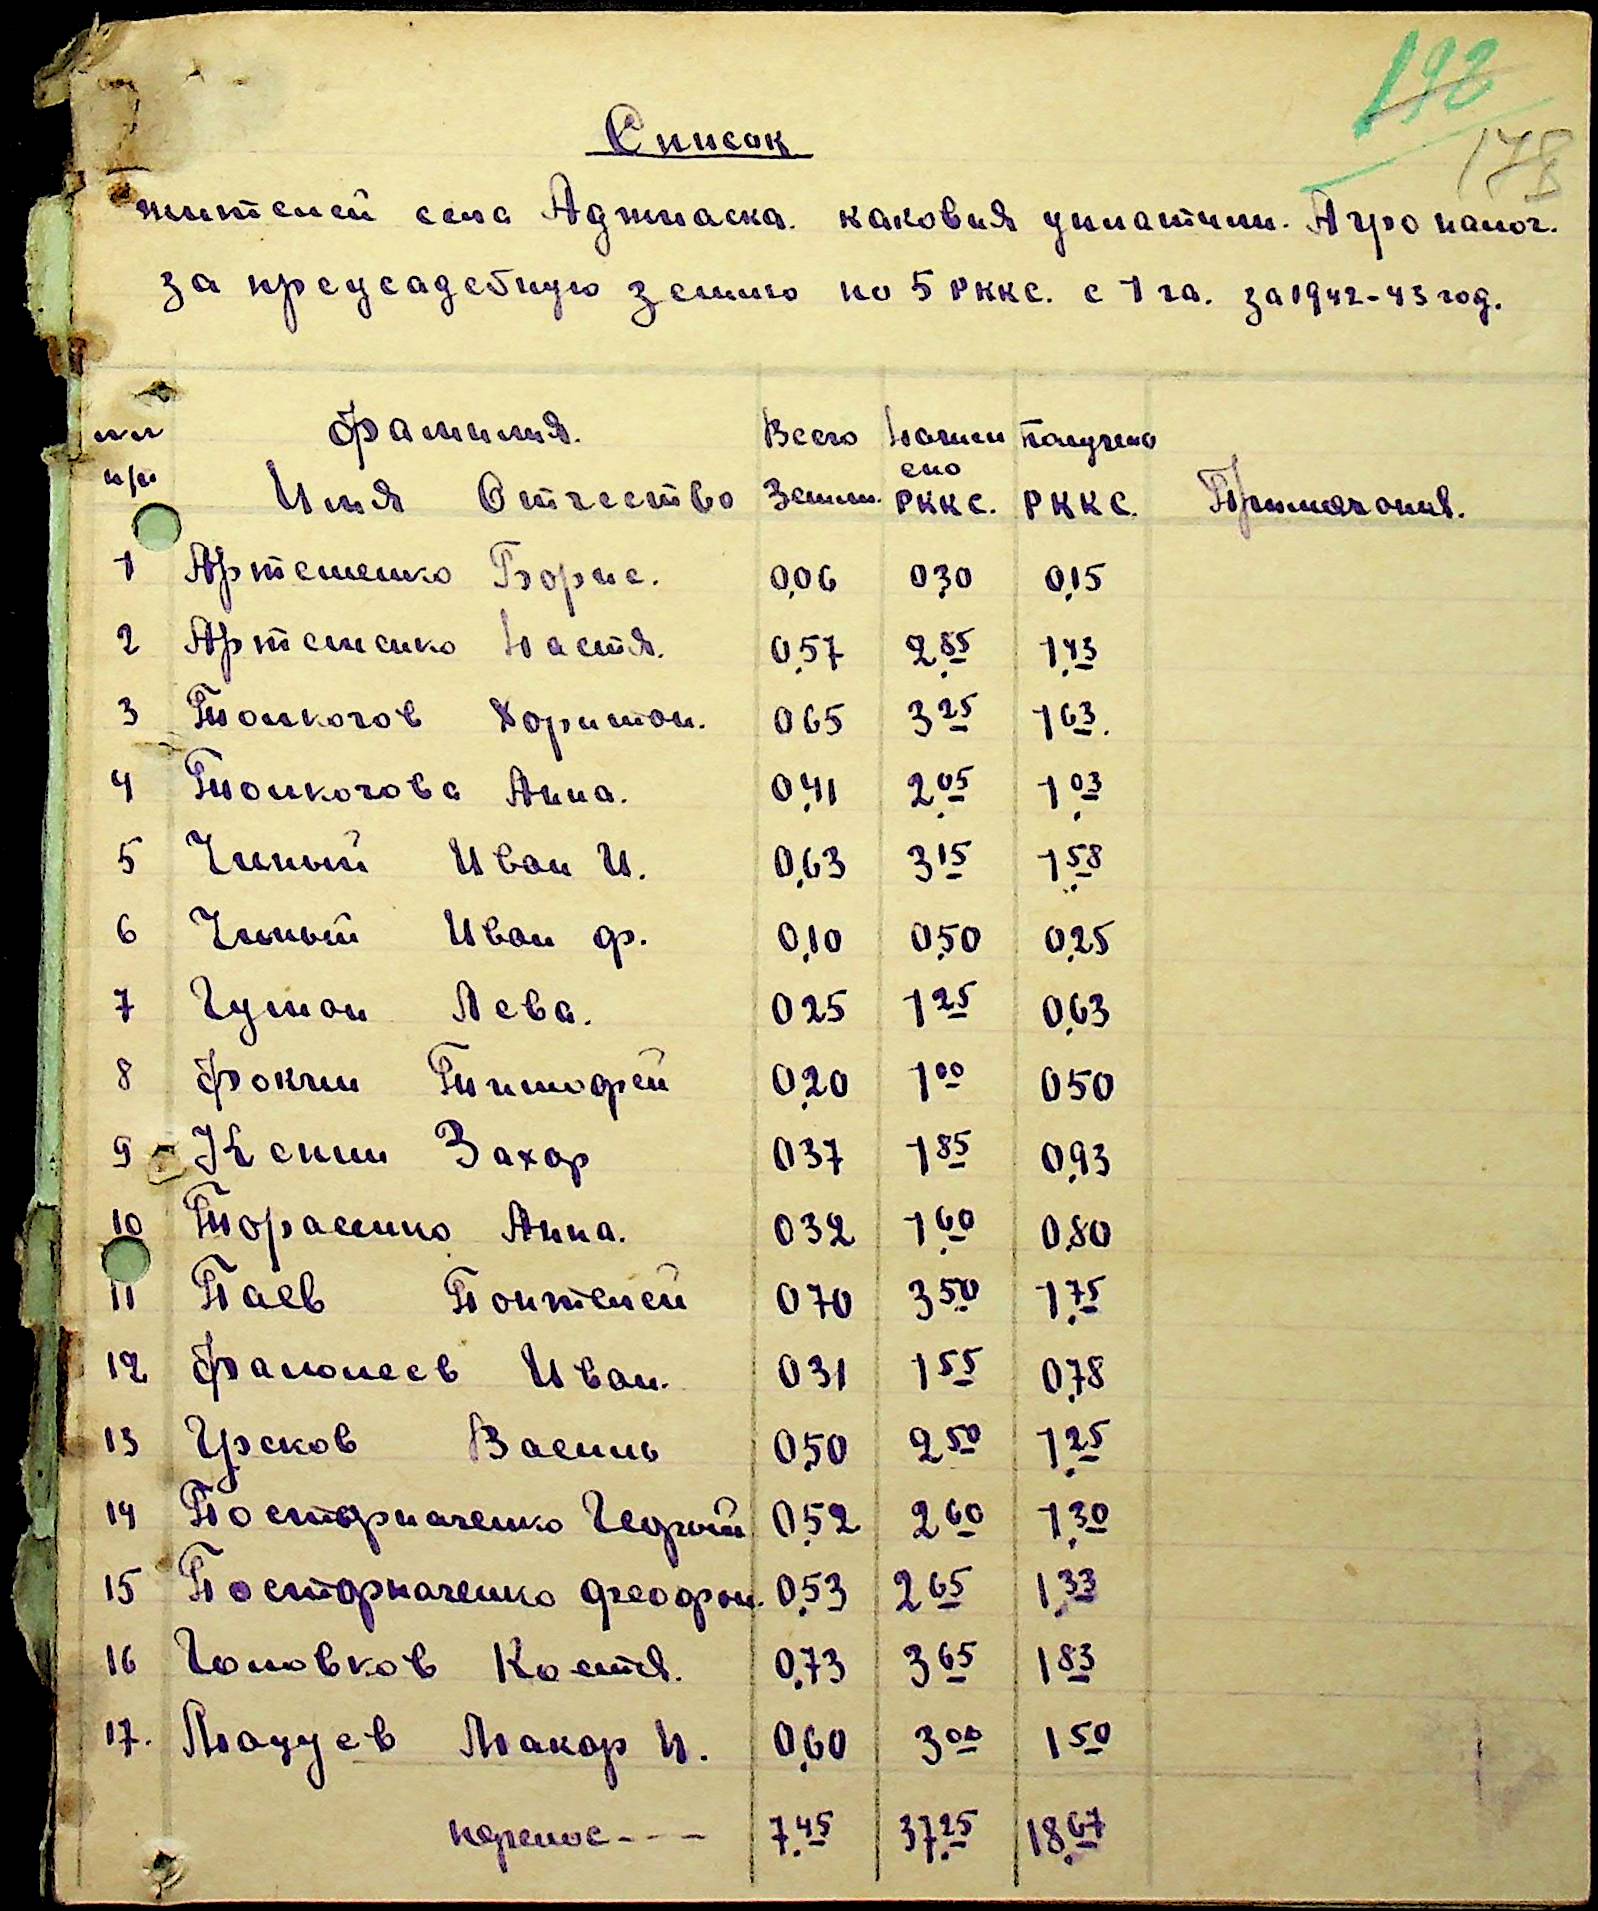 192
178
Список
жителей села Аджиаска. каковия уплатили. Агро налог.
за преусадебную землю по 5 РККС. с 1 га. за 1942-43 год.
№№ Фамилия. Всего Начисл Получено
п/п Имя Отчество Земли. ено РККС. РККС. Примечание.
1 Артеменко Борис. 0,06 0,30 0,15
2 Артеменко Настя. 0,57 2,85 1,43
3 Толкогов Харитон. 065 3 25 1 63.
4 Толкогова Анна. 0,41 2,05 1,03
5 Чилый Иван И. 0,63 3 15 1,58
6 Чилый Иван Ф. 0,10 0,50 0,25
7 Чумак Лева. 025 1 25 0,63
8 Фокин Тимофей 0,20 1 00 050
9 Захар 037 1 85 0,93
10 Тарасенко Анна. 032 1,60 0,80
11 Паев Пантелей 070 3,50 1,75
12 Фалолеев Иван. 031 1 55 0,78
13 Гусков Василь 0,50 2 50 1,25
14 Постарначенко 0,52 2 60 1,30
15 Постарначенко Феофан. 0,53 2 65 1,33
16 Головков Костя. 0,73 3 65 1 83
17. Мацуев Макар И. 0,60 3 00 1 50
перенос --- 7,45 37,25 18,67